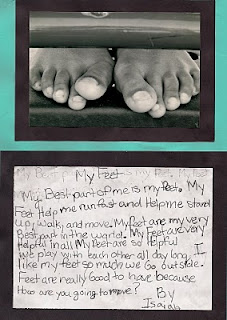 My Feet
My Best part of me is my feet. My
Feet Help me run fast and Help me stand
up, walk, and move. My Feet are my very
Best part in the world. My Feet are very
helpful in all My Feet are so helpful
we play with each other all day long. I
like my feet so much we Go outside.
Feet are really Good to have because
How are you going to move? By
Isaiah